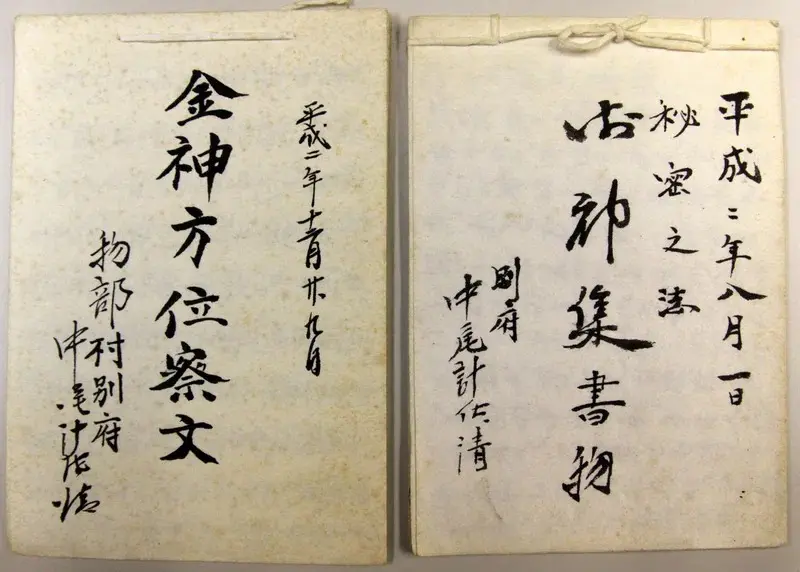 平成二年八月一日
秘密之法
御神集書物
別府
中尾計佐清
平成二年十一月廿九日
金神方位察文
物部村別府
中尾計佐清